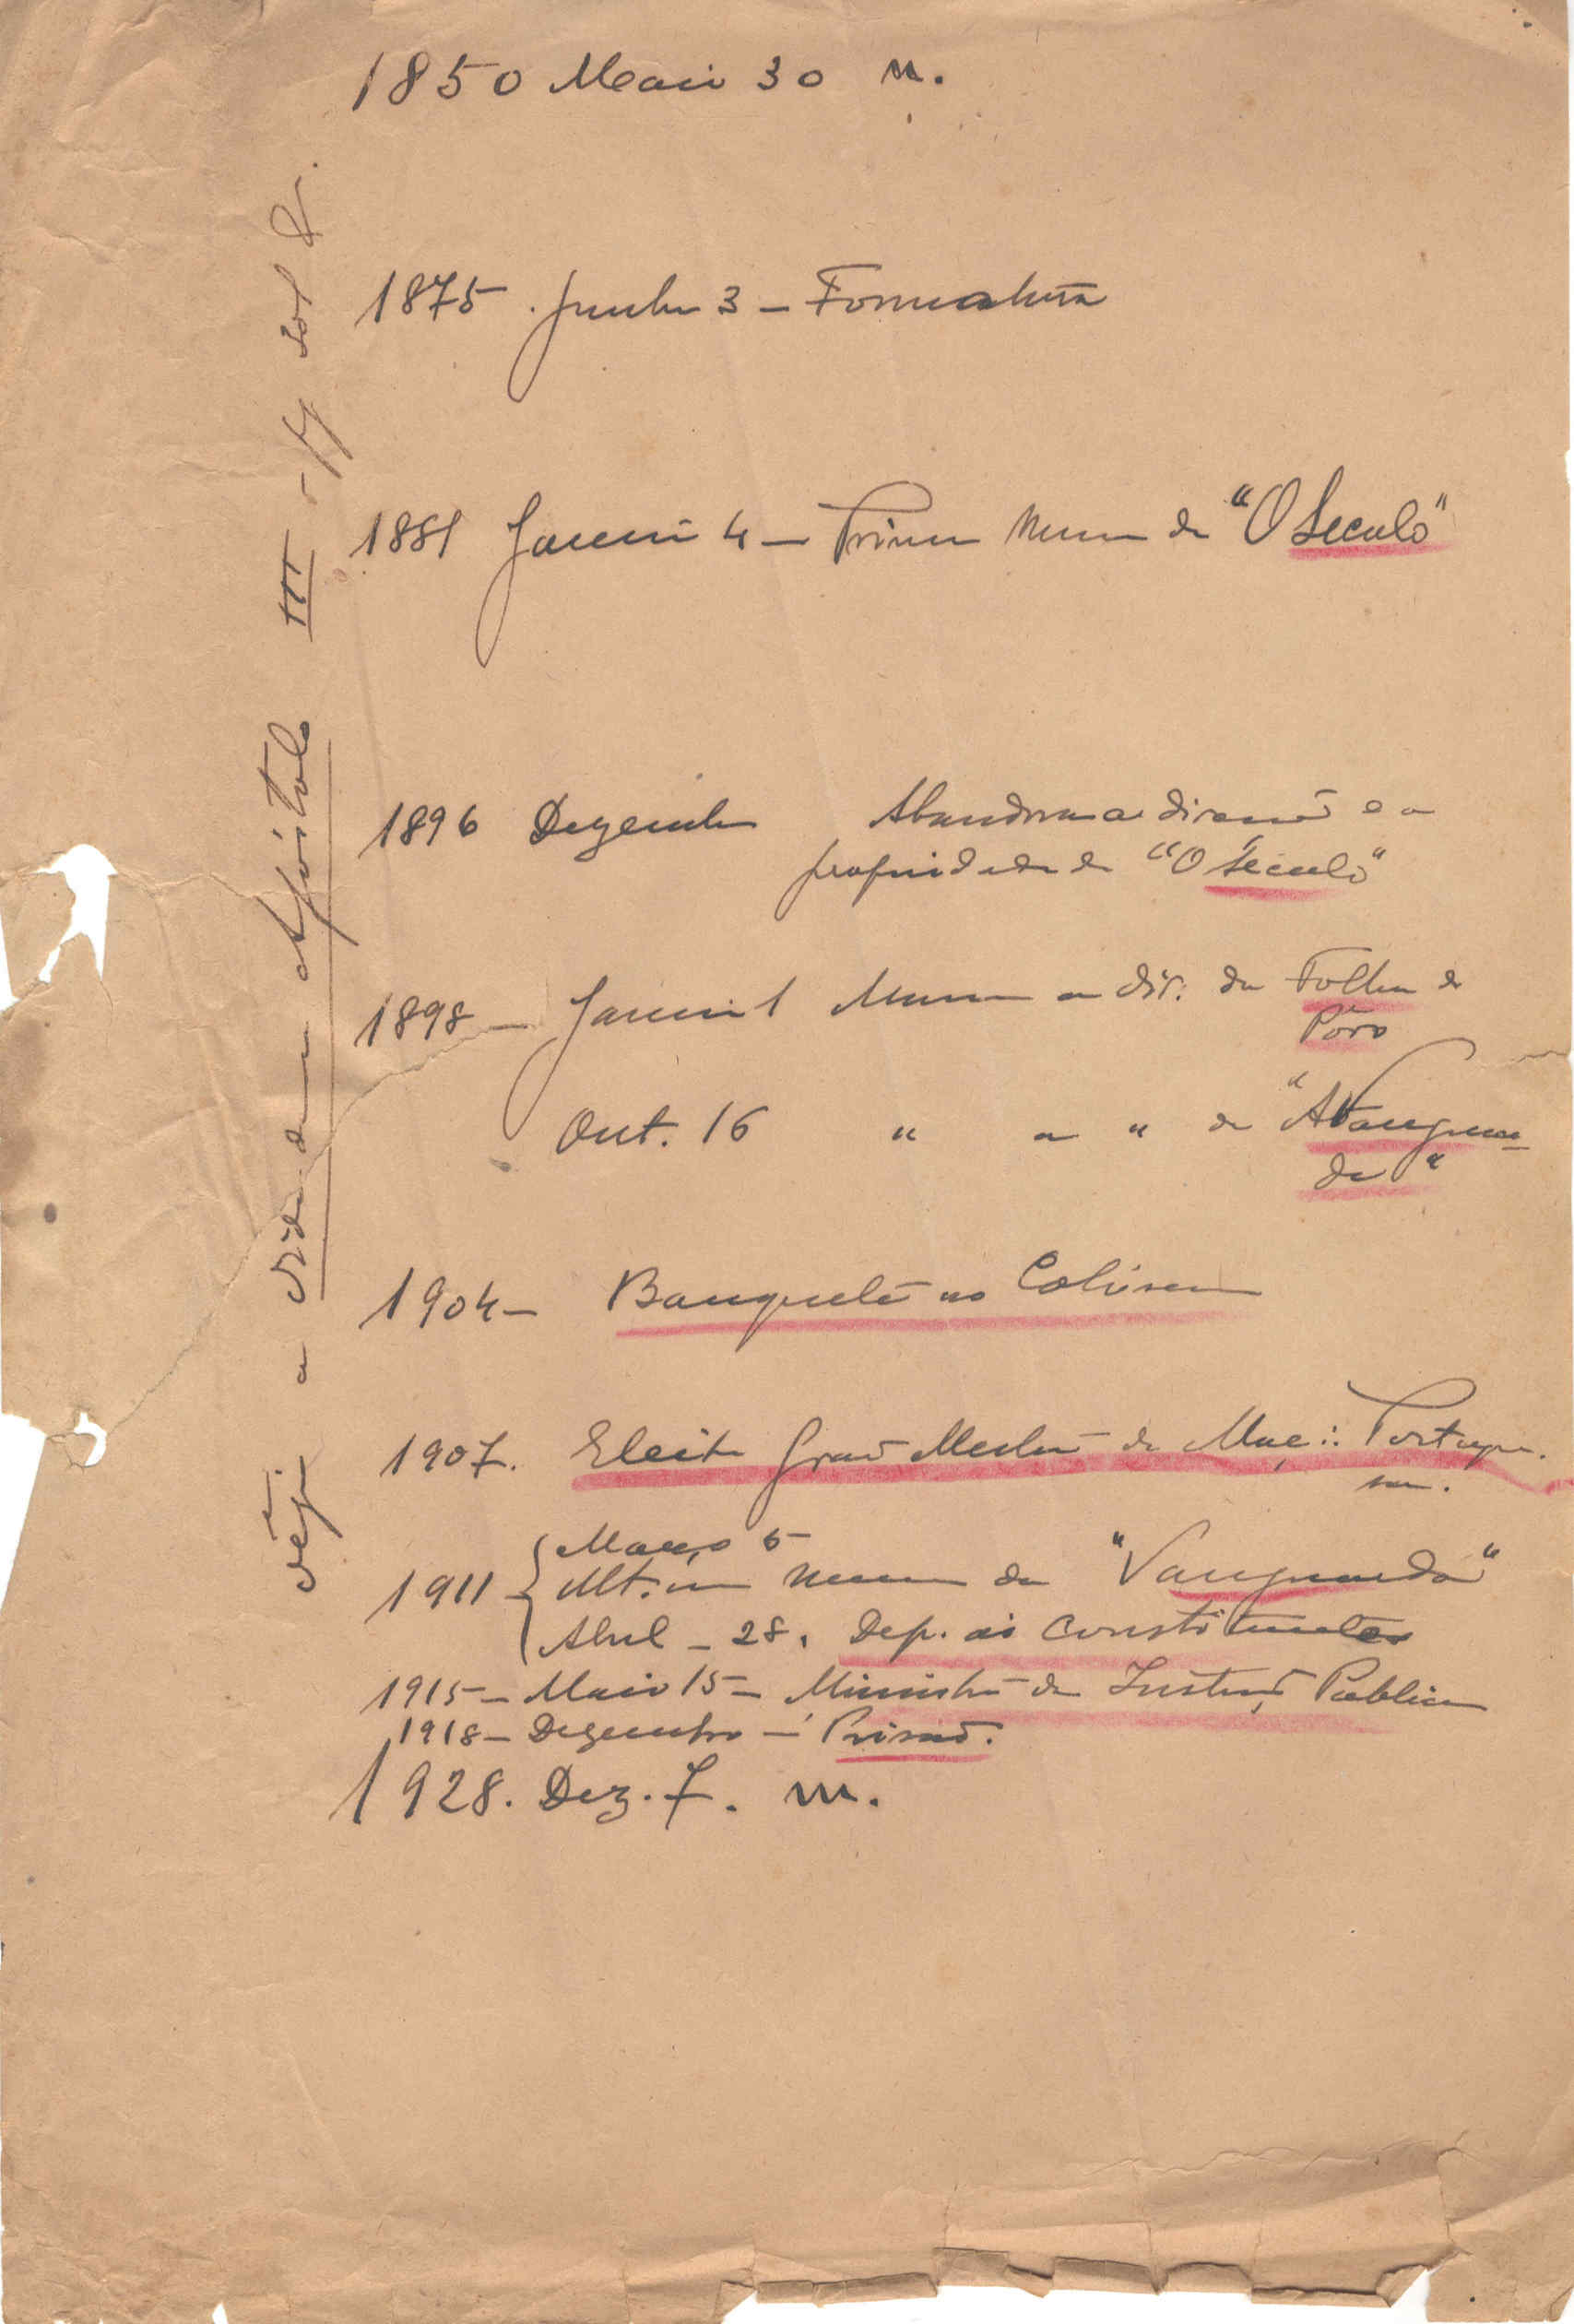 1850 Maio 30 n.
1875. Junho 3 – Formatura
1881 Janeiro 4 – Primeiro Numero do "O Seculo"
1896 Dezembro Abandona a direcção e a
propriedade do "O Seculo"
1898 – Janeiro 1 Assume a dir. da Folha do
Povo
Out. 16 " a " da "A Vanguar-
da"
1904 – Banquete no Coliseu
1907. Eleito Grão Mestre da Maç∴ Portugue-
sa.
Março 5
1911 – Ultimo numero da "Vanguarda"
Abril – 28. Dep. ás Constituintes
1915 – Maio 15 – Ministro da Instrução Publica
1918 – Dezembro – Prisão.
1928. Dez. 7. m.
Veja a Vida dum Apóstolo III –